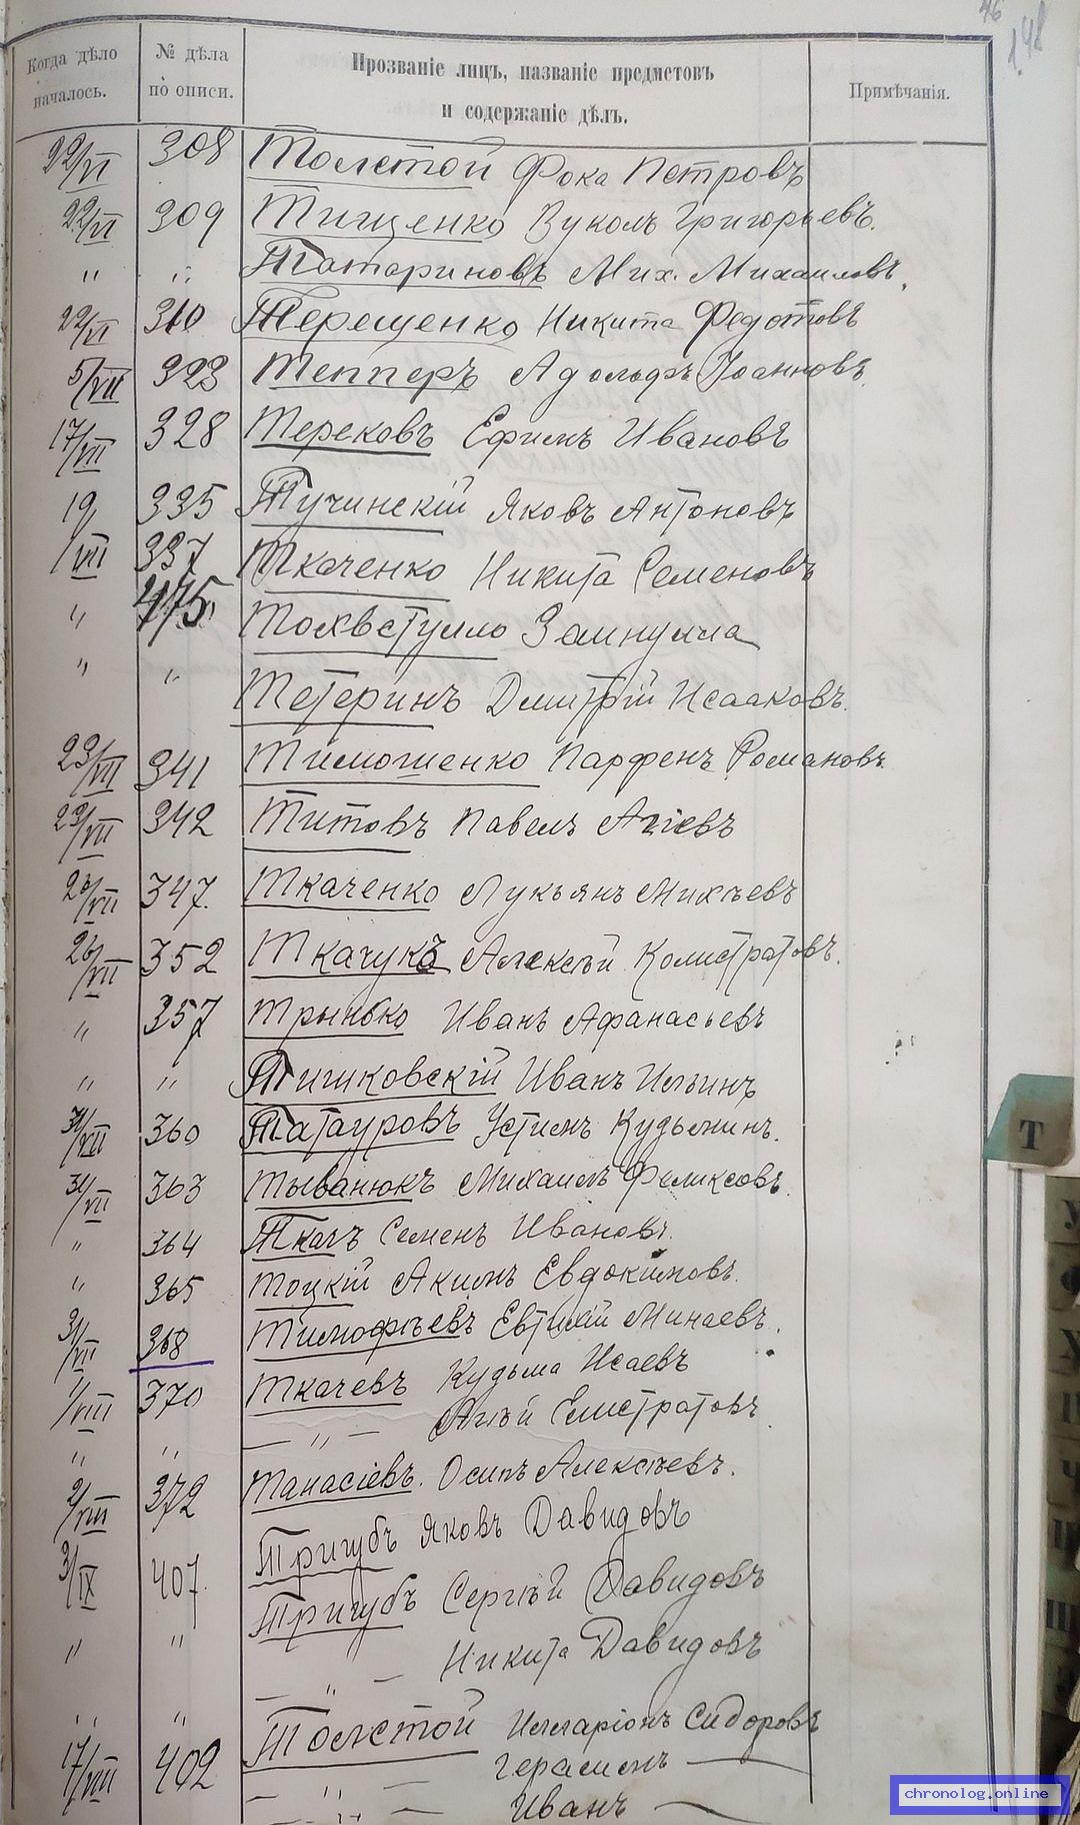 46
л.48
Когда дѣло началось. № дѣла по описи. Прозваніе лицъ, названіе предметовъ и содержаніе дѣлъ. Примѣчанія.
22/VI 308 Толстой Фока Петровъ
22/VI 309 Тищенко Вуколъ Григорьевъ.
" " Татариновъ Мих. Михаиловъ.
22/VI 310 Терещенко Никита Федотовъ
5/VII 323 Тепперъ Адольфъ Іоанновъ.
17/VII 328 Терековъ Ефимъ Ивановъ
19/VII 335 Тучинскій Яковъ Антоновъ
337 Ткаченко Никита Семеновъ
" 475 Тохвстулло Заинулла
" " Тетеринъ Дмитрій Исааковъ.
23/VII 341 Тимошенко Парфенъ Романовъ
23/VII 342 Титовъ Павелъ Агіевъ
26/VII 347. Ткаченко Лукьянъ Михѣевъ
26/VII 352 Ткачукъ Алексѣй Колистратовъ.
" 357 Трынько Иванъ Афанасьевъ
" " Тишковскій Иванъ Ильинъ
31/VII 360 Татауровъ Устинъ Кудьминъ.
31/VII 363 Тыванюкъ Михаилъ Феликсовъ.
" 364 Ткачъ Семенъ Ивановъ.
" 365 Тоцкій Акимъ Евдокимовъ.
31/VII 368 Тимофѣевъ Евтихій Минаевъ.
1/VIII 370 Ткачевъ Кудьма Исаевъ
" " — " — Агѣй Елистратовъ
2/VIII 372 Танасіевъ. Осипъ Алексѣевъ.
3/IX 407. Тригубъ Яковъ Давидовъ
" " Тригубъ Сергѣй Давидовъ
" " — " — Никита Давидовъ
17/VIII 402 Толстой Илларіонъ Сидоровъ
— " — Герасимъ —
— " — Иванъ —
Т
У
Ф
Х
Ц
Ч
Ш
chronolog.online